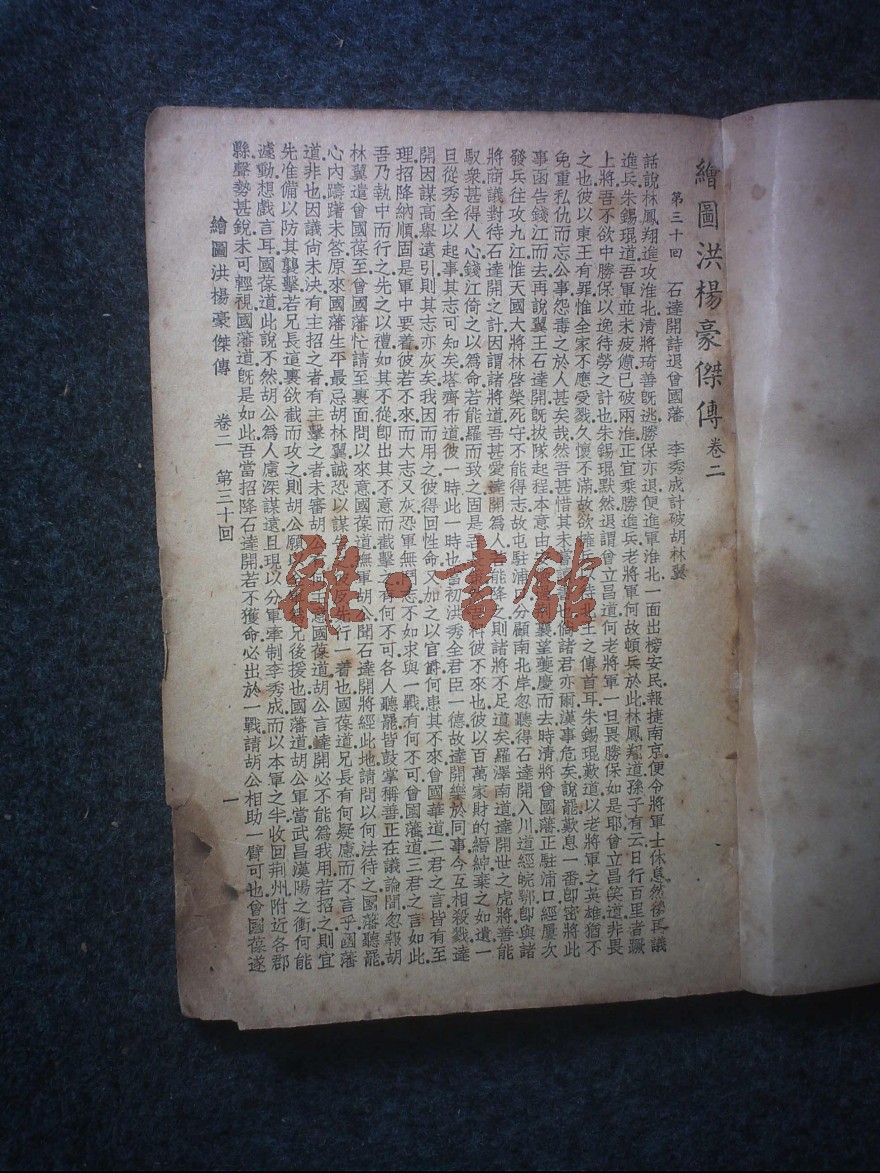 繪圖洪楊豪傑傳 卷二
第三十回 石達開詩退曾國藩 李秀成計破胡林翼
話說林鳳翔進攻淮北清將琦善既逃勝保亦退便進軍淮北一面出榜安民報捷南京便令將軍士休息然後再議
進兵朱錫琨道吾軍並未疲憊已破兩淮正宜乘勝進兵老將軍何故頓兵於此林鳳翔道孫子有云日行百里者蹶
上將吾不欲中勝保以逸待勞之計也朱錫琨默然退謂曾立昌道何老將軍一旦畏勝保如是耶曾立昌笑道非畏
之也彼以東王有罪惟全家不應受戮久懷不滿故欲擁兵以待北王之傳首耳朱錫琨歎道以老將軍之英雄猶不
免重私仇而忘公事怨毒之於人甚矣哉然吾甚惜其未當 也倘諸君亦爾漢事危矣說罷歎息一番卽密將此
事函告錢江而去再說翼王石達開既拔隊起程本意由 襄望夔慶而去時清將曾國藩正駐浦口經屢次
發兵往攻九江惟天國大將林啓榮死守不能得志故屯駐浦口分顧南北岸忽聽得石達開入川道經皖鄂卽與諸
將商議對待石達開之計因謂諸將道吾甚愛達開爲人 能降 則諸將不足道矣羅澤南道達開世之虎將善能
馭衆甚得人心錢江倚之以爲命若能羅而致之固是吾 料彼不來也彼以百萬家財的縉紳棄之如遺一
旦從秀全以起事其志可知矣塔齊布道彼一時此一時也當初洪秀全君臣一德故達開樂於同事今互相殺戮達
開因謀高舉遠引則其志亦灰矣我因而用之彼得回性命又加之以官爵何患其不來曾國華道二君之言皆有至
理招降納順固是軍中要着彼若不來而大志又灰恐軍無鬥志不如求與一戰有何不可曾國藩道三君之言如此
吾乃執中而行之先之以禮如其不從卽出其不意而截擊之有何不可各人聽罷皆鼓掌稱善正在議論間忽報胡
林翼遣曾國葆至曾國藩忙請至裏面問以來意國葆道撫軍胡公聞石達開將經此地請問以何法待之國藩聽罷
心內躊躇未答原來國藩生平最忌胡林翼誠恐以謀 反先行一着也國葆道兄長有何疑慮而不言乎國藩
道非也因議尙未決有主招之者有主擊之者未審胡公 何主意國葆道胡公言達開必不能爲我用若招之則宜
先准備以防其襲擊若兄長這裏欲截而攻之則胡公願以 兄後援也國藩道胡公軍當武昌漢陽之衝何能
遽動想戲言耳國葆道此說不然胡公爲人慮深謀遠且現以分軍牽制李秀成而以本軍之半收回荆州附近各郡
縣聲勢甚銳未可輕視國藩道既是如此吾當招降石達開若不獲命必出於一戰請胡公相助一臂可也曾國葆遂
繪圖洪楊豪傑傳 卷二 第三十回 一
雜·書館